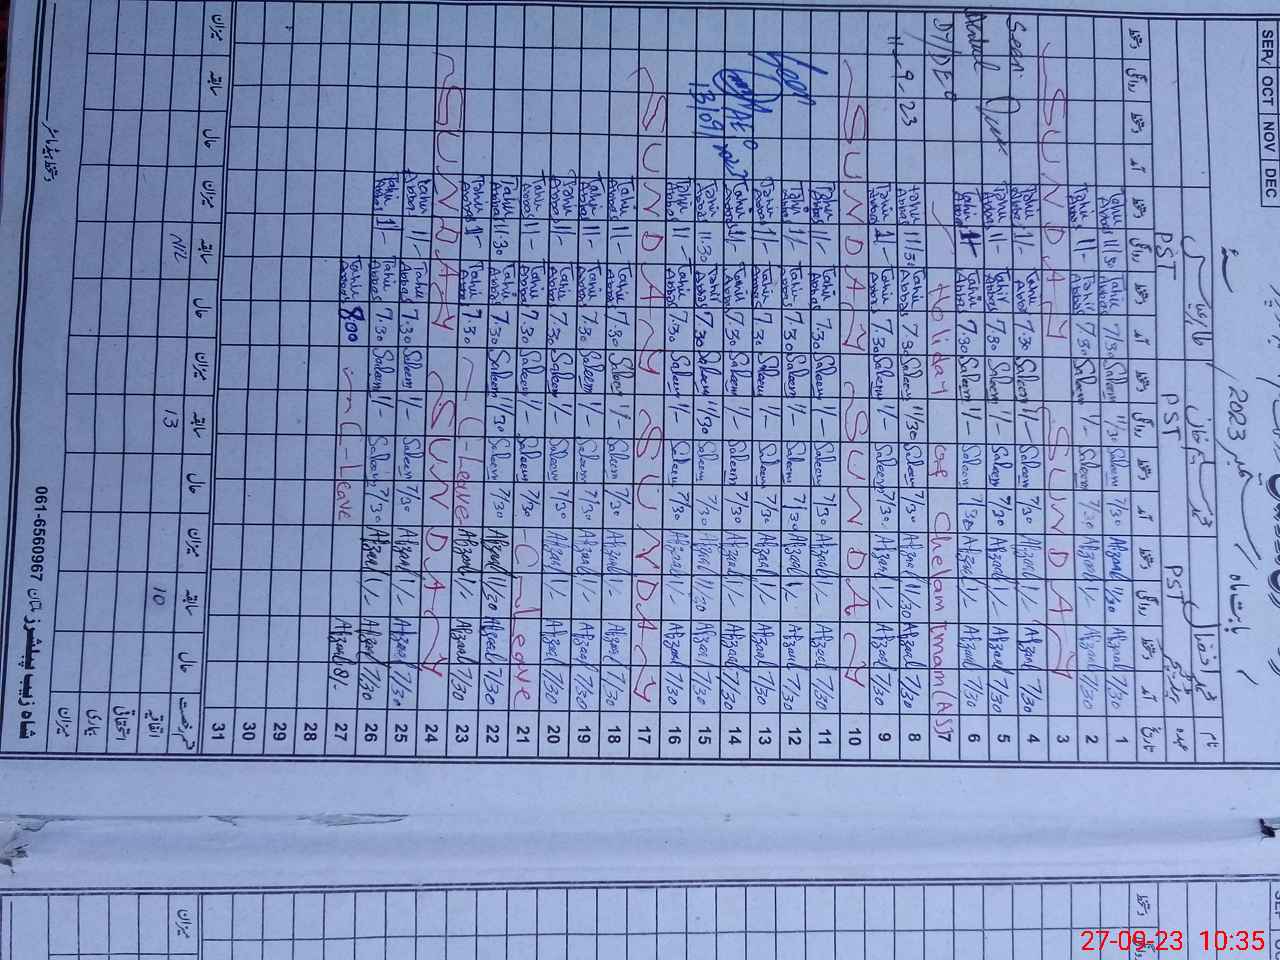 SERV OCT NOV DEC
بابت ماہ ستمبر 2023ء
نام
عہدہ PST PST PST
تاریخ آمد دستخط روانگی دستخط آمد دستخط روانگی دستخط آمد دستخط روانگی دستخط آمد دستخط روانگی دستخط
1 7/30 Afzaal 11/30 Afzaal 7/30 Saleem 11/30 Saleem 7:30 Tahir Abbas 11:30 Tahir Abbas
2 7/30 Afzaal 1/- Afzaal 7/30 Saleem 1/- Saleem 7:30 Tahir Abbas 1/- Tahir Abbas
3 SUNDAY SUNDAY
4 7/30 Afzaal 1/- Afzaal 7/30 Saleem 1/- Saleem 7:30 Tahir Abbas 1/- Tahir Abbas
5 7/30 Afzaal 1/- Afzaal 7/30 Saleem 1/- Saleem 7:30 Tahir Abbas 1/- Tahir Abbas
6 7/30 Afzaal 1/- Afzaal 7/30 Saleem 1/- Saleem 7:30 Tahir Abbas 1/- Tahir Abbas
7 Holiday of Chelam Imam (AS)
8 7/30 Afzaal 11/30 Afzaal 7/30 Saleem 11/30 Saleem 7:30 Tahir Abbas 11/30 Tahir Abbas
9 7/30 Afzaal 1/- Afzaal 7/30 Saleem 1/- Saleem 7:30 Tahir Abbas 1/- Tahir Abbas
10 SUNDAY SUNDAY
11 7/30 Afzaal 1/- Afzaal 7/30 Saleem 1/- Saleem 7:30 Tahir Abbas 1/- Tahir Abbas
12 7/30 Afzaal 1/- Afzaal 7/30 Saleem 1/- Saleem 7:30 Tahir Abbas 1/- Tahir Abbas
13 7/30 Afzaal 1/- Afzaal 7/30 Saleem 1/- Saleem 7:30 Tahir Abbas 1/- Tahir Abbas
14 7/30 Afzaal 1/- Afzaal 7/30 Saleem 1/- Saleem 7:30 Tahir Abbas 1/- Tahir Abbas
15 7/30 Afzaal 11/30 Afzaal 7/30 Saleem 11/30 Saleem 7:30 Tahir Abbas 11:30 Tahir Abbas
16 7/30 Afzaal 1/- Afzaal 7/30 Saleem 1/- Saleem 7:30 Tahir Abbas 1/- Tahir Abbas
17 SUNDAY SUNDAY
18 7/30 Afzaal 1/- Afzaal 7/30 Saleem 1/- Saleem 7:30 Tahir Abbas 1/- Tahir Abbas
19 7/30 Afzaal 1/- Afzaal 7/30 Saleem 1/- Saleem 7:30 Tahir Abbas 1/- Tahir Abbas
20 7/30 Afzaal 1/- Afzaal 7/30 Saleem 1/- Saleem 7:30 Tahir Abbas 1/- Tahir Abbas
21 C-Leave 7/30 Saleem 1/- Saleem 7:30 Tahir Abbas 1/- Tahir Abbas
22 7/30 Afzaal 11/30 Afzaal 7/30 Saleem 11/30 Saleem 7:30 Tahir Abbas 11:30 Tahir Abbas
23 7/30 Afzaal 1/- Afzaal C-Leave 7:30 Tahir Abbas 1/- Tahir Abbas
24 SUNDAY SUNDAY
25 7/30 Afzaal 1/- Afzaal 7/30 Saleem 1/- Saleem 7:30 Tahir Abbas 1/- Tahir Abbas
26 7/30 Afzaal 1/- Afzaal 7/30 Saleem 1/- Saleem 7:30 Tahir Abbas 1/- Tahir Abbas
27 8/- Afzaal C-Leave 8:00 Tahir Abbas
28
29
30
31
Seen
DY/DEO
11-9-23
Seen
AEO
13/09/
قسم رخصت حال سابقہ میزان حال سابقہ میزان حال سابقہ میزان حال سابقہ میزان
اتفاقیہ 10 13 NIL
استحقاقی
بیماری
میزان
شاہ زیب پبلشرز ملتان 061-6560967
میزان
27-09-23 10:35